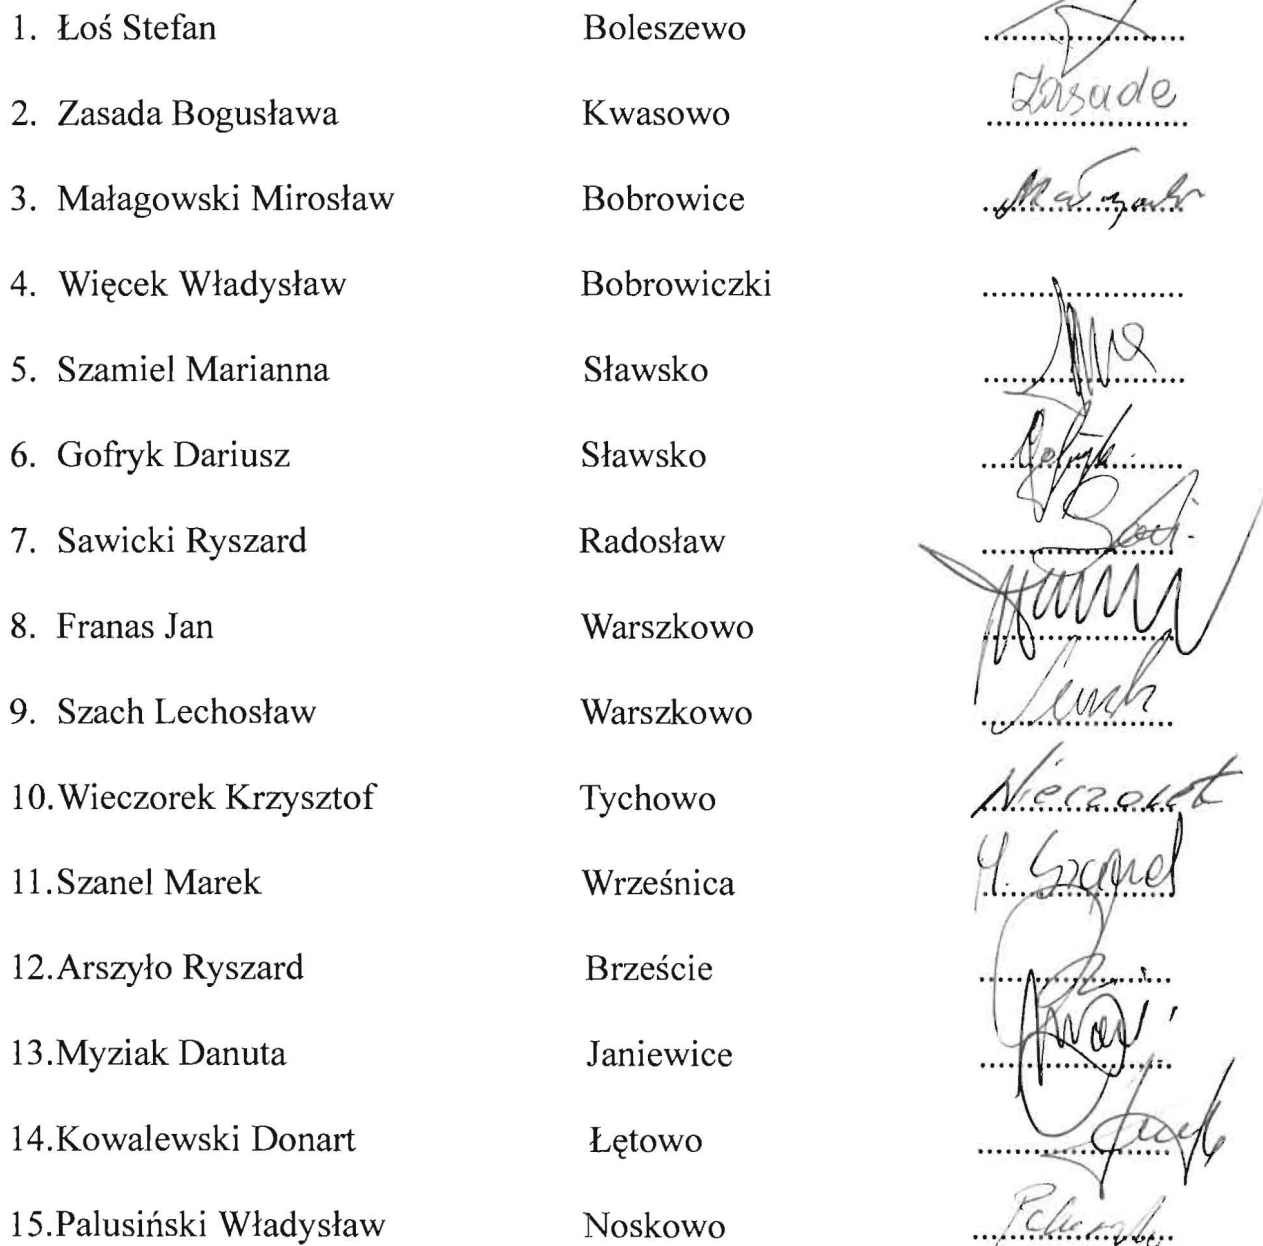 1. Łoś Stefan Boleszewo ....................
2. Zasada Bogusława Kwasowo Zasada
3. Małagowski Mirosław Bobrowice ....................
4. Więcek Władysław Bobrowiczki ....................
5. Szamiel Marianna Sławsko ....................
6. Gofryk Dariusz Sławsko ....................
7. Sawicki Ryszard Radosław ....................
8. Franas Jan Warszkowo ....................
9. Szach Lechosław Warszkowo ....................
10. Wieczorek Krzysztof Tychowo Wieczorek
11. Szanel Marek Wrześnica M. Szanel
12. Arszyło Ryszard Brzeście ....................
13. Myziak Danuta Janiewice ....................
14. Kowalewski Donart Łętowo ....................
15. Palusiński Władysław Noskowo ....................